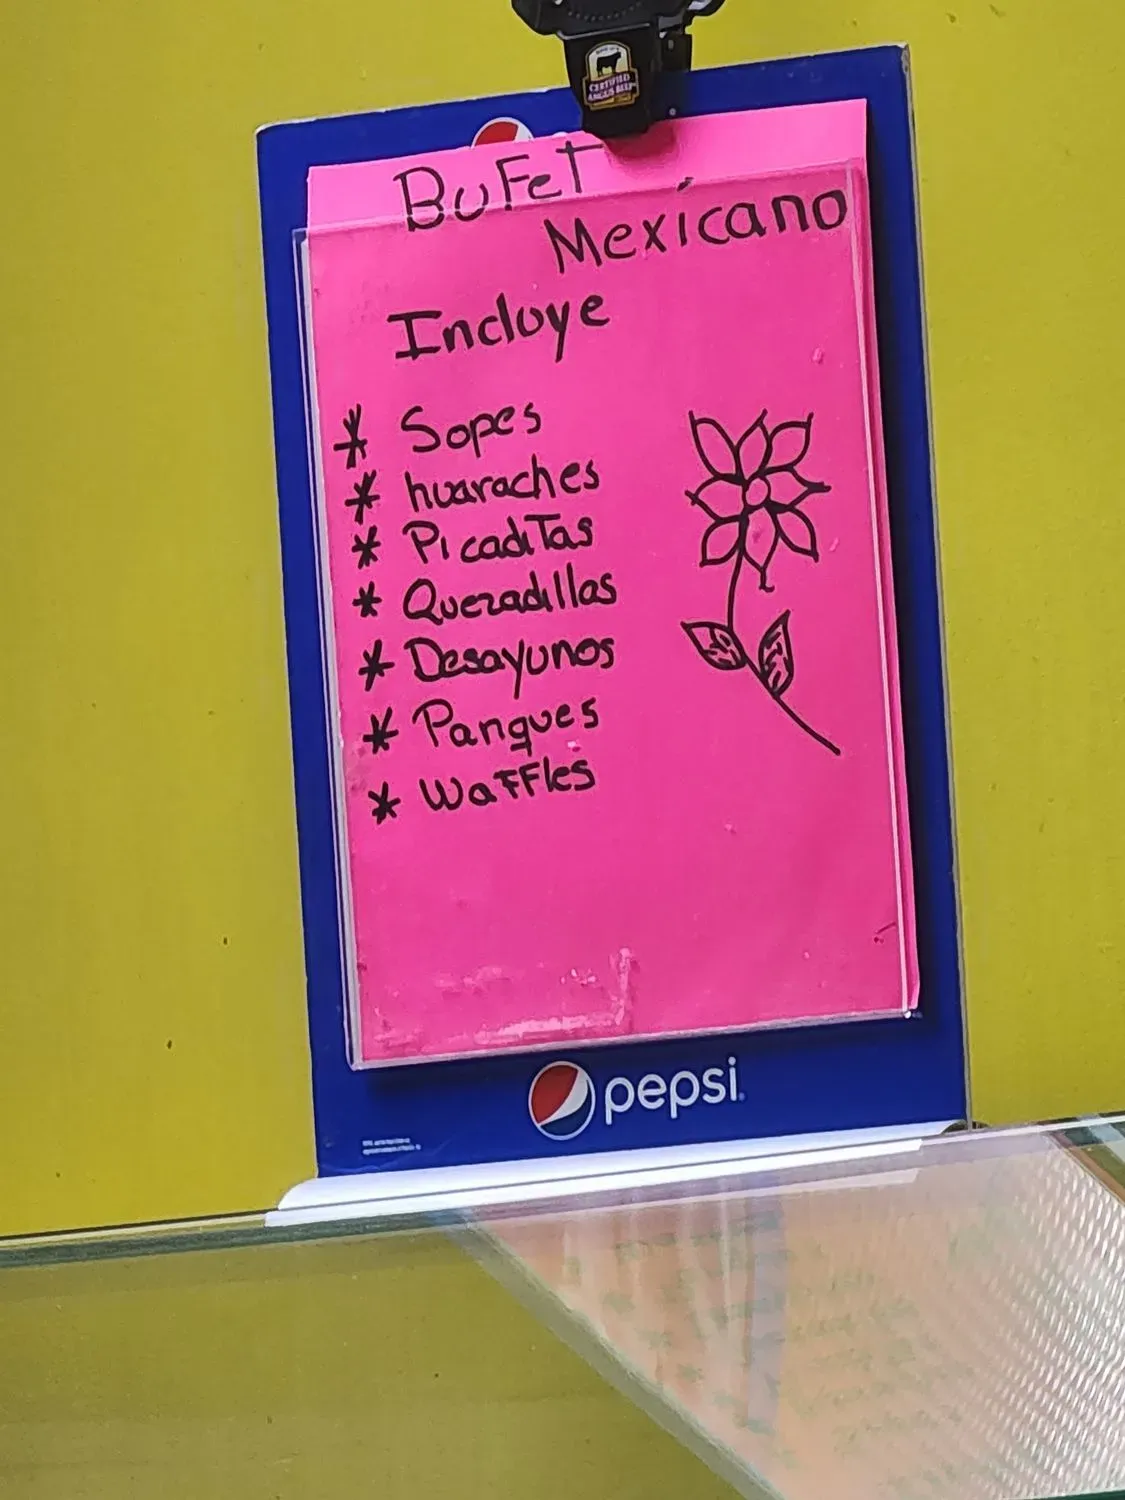 CERTIFIED
ANGUS BEEF
BuFeT
Mexicano
Incluye
* Sopes
* huaraches
* PicadiTas
* Quezadillas
* Desayunos
* Panques
* WaFFles
pepsi